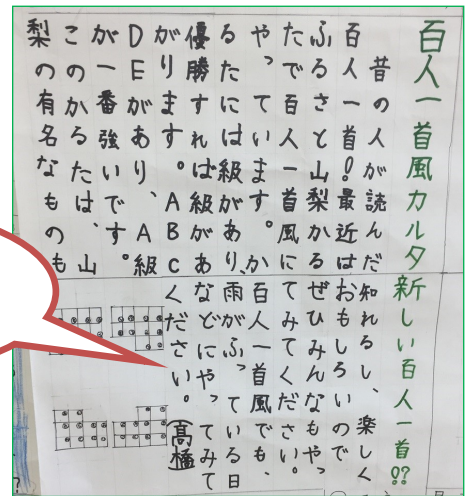 百人一首風カルタ 新しい百人一首!?
昔の人が読んだ
百人一首!最近は
ふるさと山梨かる
たで百人一首風に
やっています。か
るたには級があり、
優勝すれば級があ
がります。ABC
DEがあり、A級
が一番強いです。
このかるたは、山
梨の有名なものも
知れるし、楽しく
おもしろいので
ぜひみんなもやっ
てみてください。
百人一首風でも、
雨がふっている日
などにやってみて
ください。(高橋)